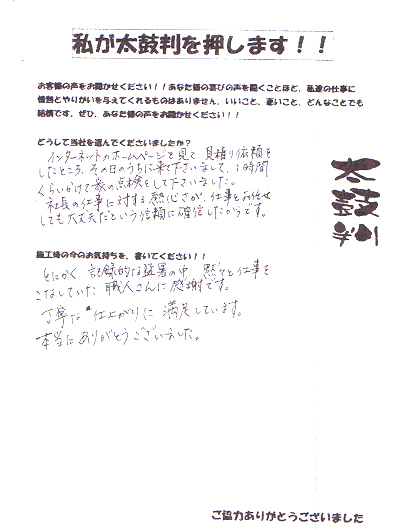 私が太鼓判を押します！！
お客様の声をお聞かせください！！あなた様の喜びの声を聞くことほど、私達の仕事に
情熱とやりがいを与えてくれるものはありません。いいこと、悪いこと、どんなことでも
結構です。ぜひ、あなた様の声をお聞かせください！！
どうして当社を選んでくださいましたか？
インターネットのホームページを見て 見積り依頼を
したところ、その日のうちに来て下さいまして、1時間
くらいかけて家の点検をして下さいました。
社長の仕事に対する熱心さが、仕事をお任せ
しても大丈夫だという信頼に確信したからです。
太鼓判
施工後の今のお気持ちを、書いてください！！
とにかく、記録的な猛暑の中、黙々と仕事を
こなしていた 職人さんに感謝です。
丁寧な 仕上がりに 満足しています。
本当にありがとうございました。
ご協力ありがとうございました